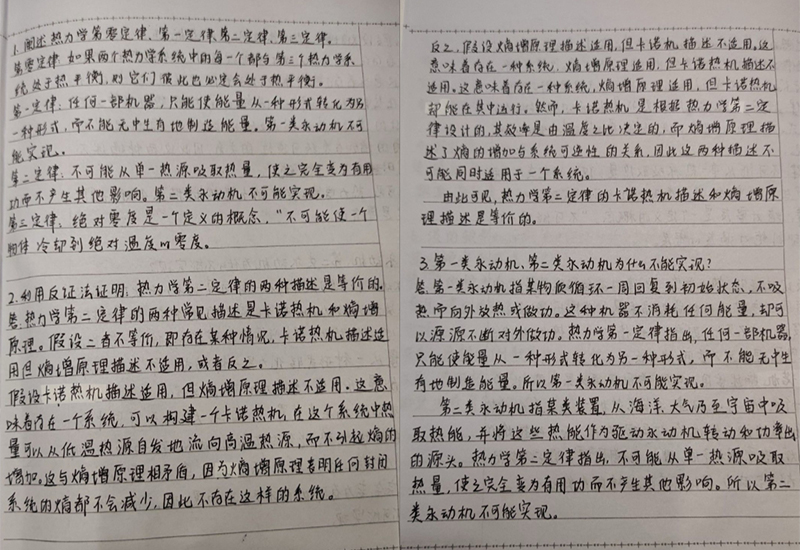 1. 阐述热力学第零定律、第一定律、第二定律、第三定律。
第零定律: 如果两个热力学系统中的每一个都与第三个热力学系
统处于热平衡, 则它们彼此也必定会处于热平衡。
第一定律: 任何一部机器, 只能使能量从一种形式转化为另
一种形式, 而不能无中生有地制造能量。第一类永动机不可
能实现。
第二定律: 不可能从单一热源吸取热量, 使之完全变为有用
功而不产生其他影响。第二类永动机不可能实现。
第三定律: 绝对零度是一个定义的概念, “不可能使一个
物体冷却到绝对温度的零度。
2. 利用反证法证明: 热力学第二定律的两种描述是等价的。
答: 热力学第二定律的两种常见描述是卡诺热机和熵增
原理。假设二者不等价, 即存在某种情况, 卡诺热机描述适
用但熵增原理描述不适用, 或者反之。
假设卡诺热机描述适用, 但熵增原理描述不适用。这意
味着存在一个系统, 可以构建一个卡诺热机, 在这个系统中热
量可以从低温热源自发地流向高温热源, 而不引起熵的
增加。这与熵增原理相矛盾, 因为熵增原理表明任何封闭
系统的熵都不会减少, 因此不存在这样的系统。
反之, 假设熵增原理描述适用, 但卡诺机描述不适用。这
意味着存在一种系统, 熵增原理描述适用, 但卡诺热机描述不
适用。这意味着存在一种系统, 熵增原理适用, 但卡诺热机
却能在其中运行。然而, 卡诺热机是根据热力学第二定
律设计的, 其效率是由温度之比决定的, 而熵增原理描
述了熵的增加与系统可逆性的关系, 因此这两种描述不
可能同时适用于一个系统。
由此可见, 热力学第二定律的卡诺热机描述和熵增原
理描述是等价的。
3. 第一类永动机、第二类永动机为什么不能实现?
答: 第一类永动机指某物质循环一周回复到初始状态, 不吸
热而向外放热或做功。这种机器不消耗任何能量, 却可
以源源不断对外做功。热力学第一定律指出, 任何一部机器,
只能使能量从一种形式转化为另一种形式, 而不能无中生
有地制造能量。所以第一类永动机不可能实现。
第二类永动机指某类装置, 从海洋、大气乃至宇宙中吸
取热能, 并将这些热能作为驱动永动机转动和功率出
的源头。热力学第二定律指出, 不可能从单一热源吸取
热量, 使之完全变为有用功而不产生其他影响。所以第二
类永动机不可能实现。